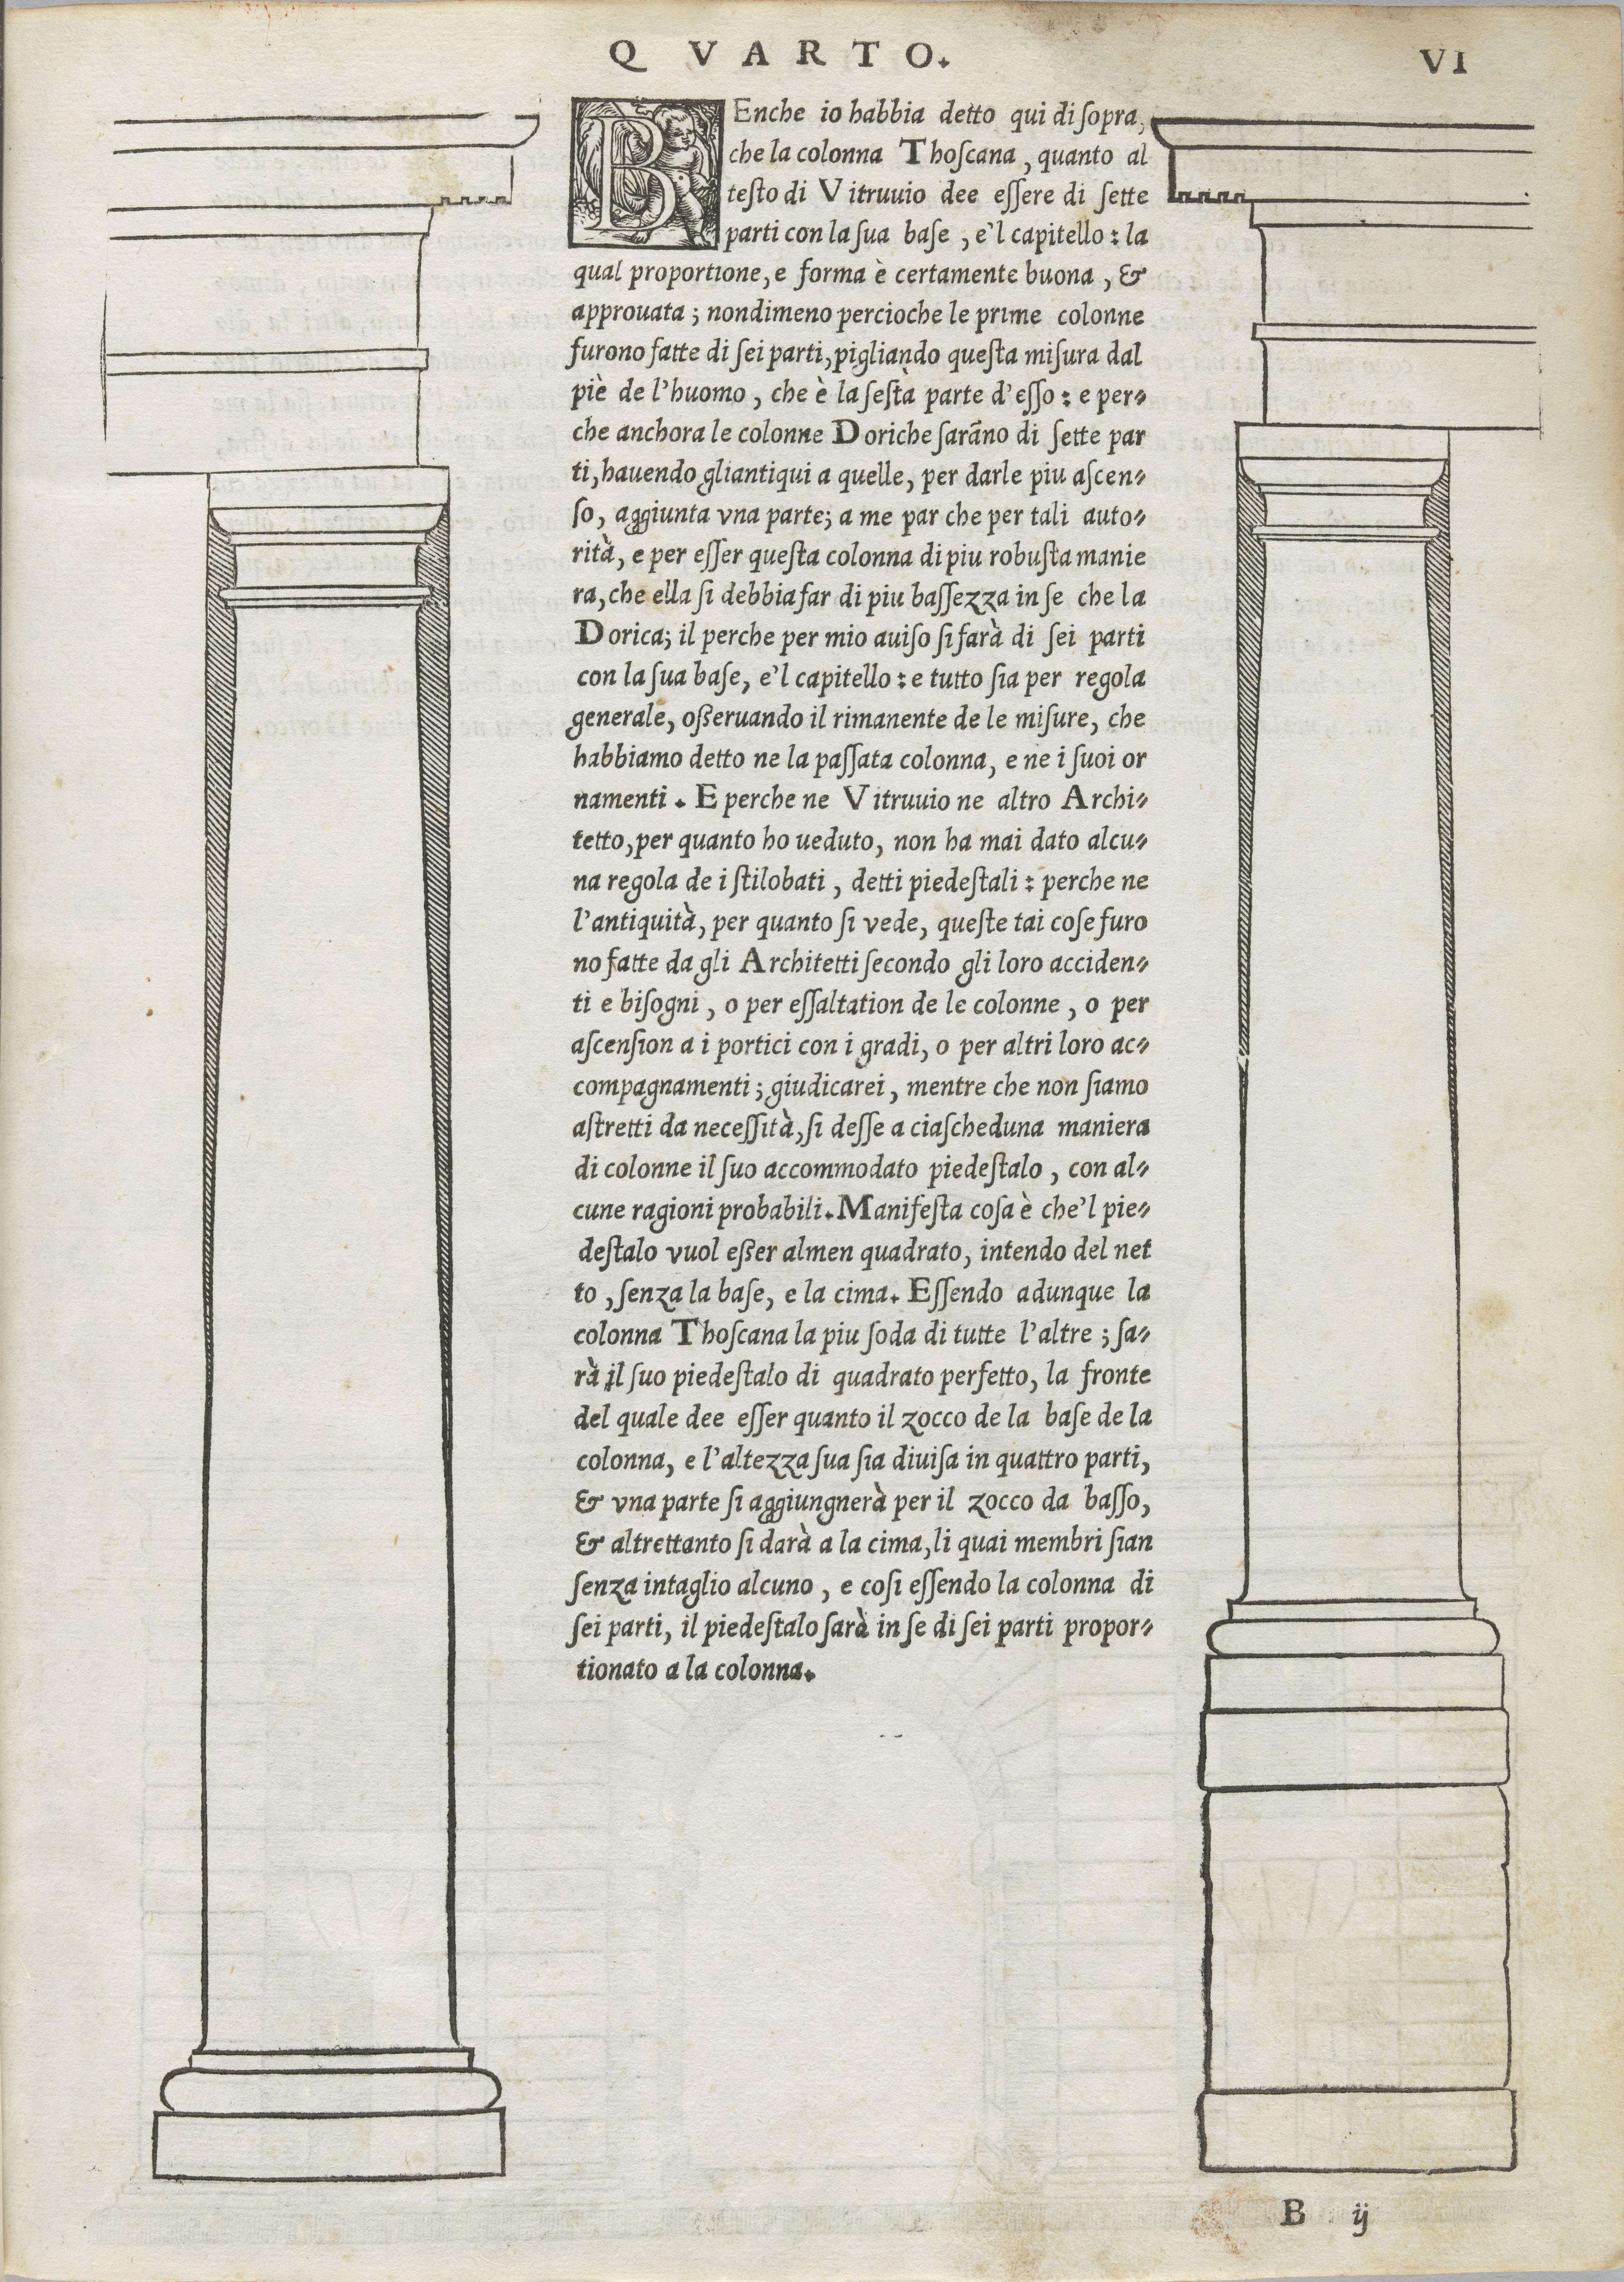 Q VARTO.
VI
BEnche io habbia detto qui di ſopra,
che la colonna Thoſcana, quanto al
teſto di Vitruuio dee eſſere di ſette
parti con la ſua baſe, e'l capitello: la
qual proportione, e forma è certamente buona, &
approuata; nondimeno percioche le prime colonne
furono fatte di ſei parti, pigliando queſta miſura dal
piè de l'huomo, che è la ſeſtà parte d'eſſo: e per-
che anchora le colonne Doriche ſarāno di ſette par
ti, hauendo gliantiqui a quelle, per darle piu aſcen-
ſo, aggiunta vna parte; a me par che per tali auto-
rità, e per eſſer queſta colonna di piu robuſta manie
ra, che ella ſi debbia far di piu baſſezza in ſe che la
Dorica; il perche per mio auiſo ſi farà di ſei parti
con la ſua baſe, e'l capitello: e tutto ſia per regola
generale, oßeruando il rimanente de le miſure, che
habbiamo detto ne la paſſata colonna, e ne i ſuoi or
namenti. E perche ne Vitruuio ne altro Archi-
tetto, per quanto ho ueduto, non ha mai dato alcu-
na regola de i ſtilobati, detti piedeſtali: perche ne
l'antiquità, per quanto ſi vede, queſte tai coſe furo
no fatte da gli Architetti ſecondo gli loro acciden-
ti e biſogni, o per eſſaltation de le colonne, o per
aſcenſion a i portici con i gradi, o per altri loro ac-
compagnamenti; giudicarei, mentre che non ſiamo
aſtretti da neceſſità, ſi deſſe a ciaſcheduna maniera
di colonne il ſuo accommodato piedeſtalo, con al-
cune ragioni probabili. Manifeſta coſa è che'l pie-
deſtalo vuol eßer almen quadrato, intendo del net
to, ſenza la baſe, e la cima. Eſſendo adunque la
colonna Thoſcana la piu ſoda di tutte l'altre; ſa-
rà il ſuo piedeſtalo di quadrato perfetto, la fronte
del quale dee eſſer quanto il zocco de la baſe de la
colonna, e l'altezza ſua ſia diuiſa in quattro parti,
& vna parte ſi aggiungnerà per il zocco da baſſo,
& altrettanto ſi darà a la cima, li quai membri ſian
ſenza intaglio alcuno, e coſi eſſendo la colonna di
ſei parti, il piedeſtalo ſarà in ſe di ſei parti propor-
tionato a la colonna.
B ij